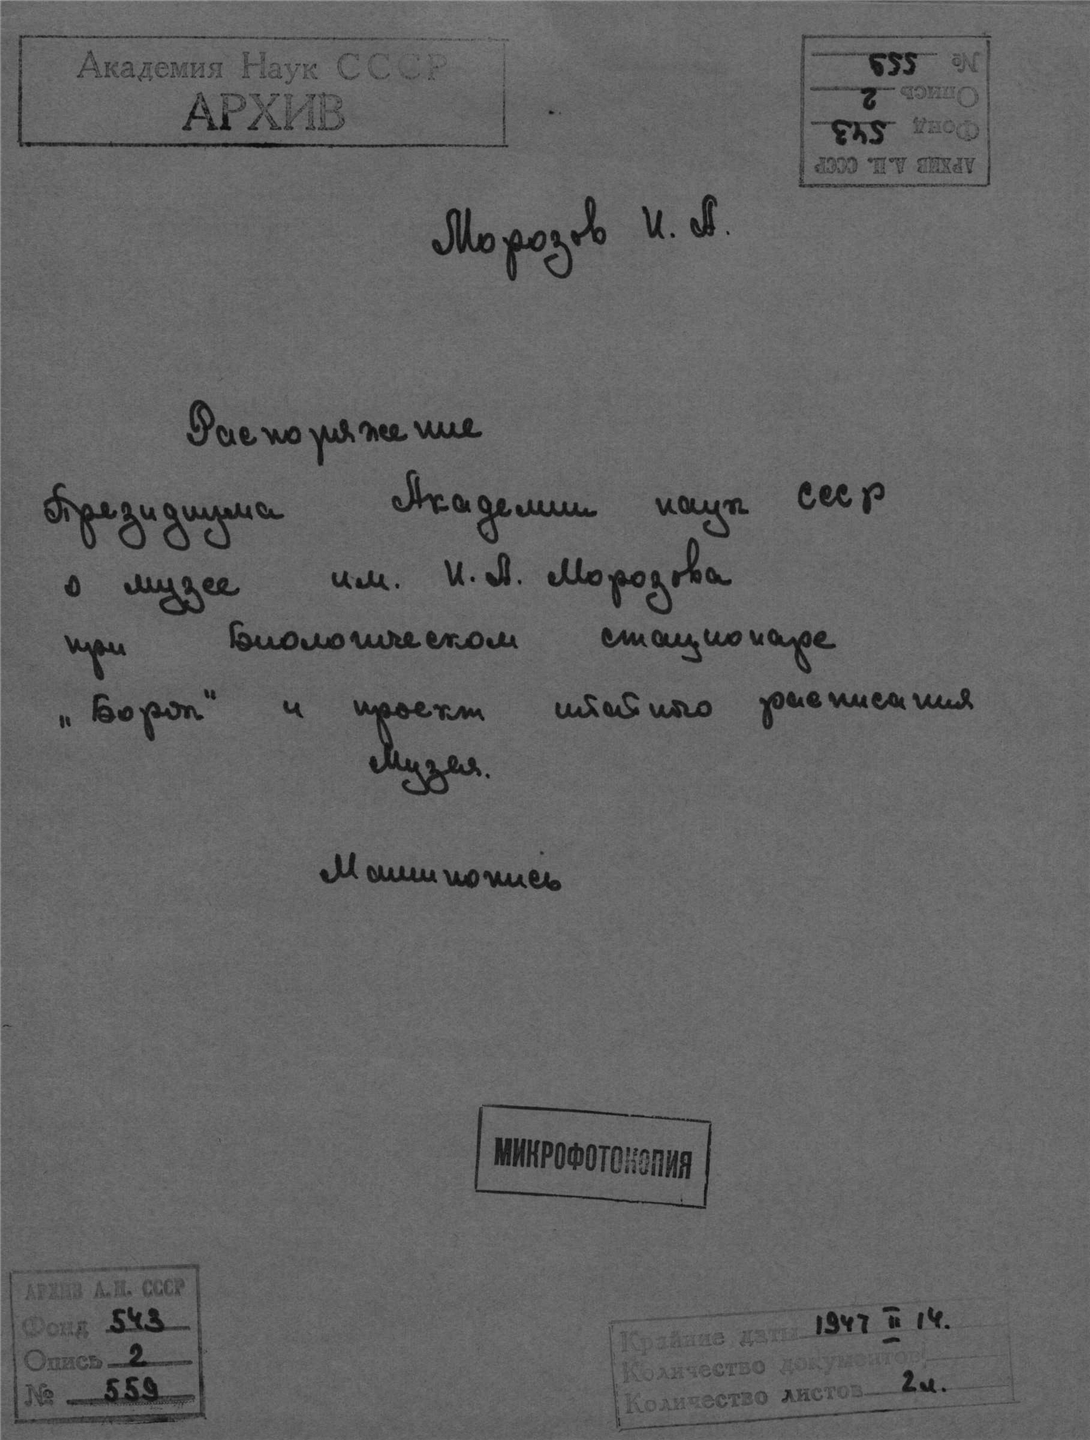 Академия Наук СССР
АРХИВ
№ 559
Опись 2
Фонд 543
АРХИВ А.Н. СССР
Морозов Н. А.
Распоряжение
Президиума Академии наук СССР
о музее им. Н. А. Морозова
при Биологическом стационаре
„Борок" и проект штатного расписания
Музея.
Машинопись
МИКРОФОТОКОПИЯ
АРХИВ А.Н. СССР
Фонд 543
Опись 2
№ 559
Крайние даты 1947 II 14.
Количество документов
Количество листов 2 л.